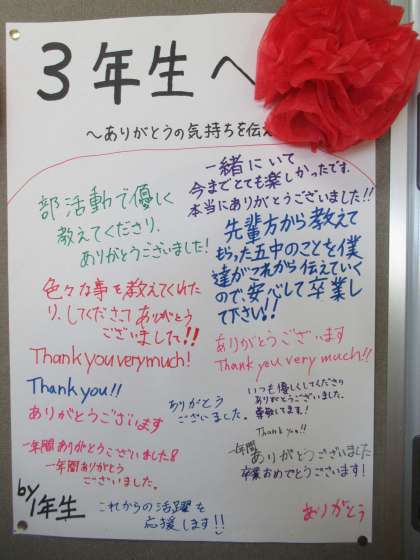 3年生へ
〜ありがとうの気持ちを伝え
一緒にいて
今までとても楽しかったです。
本当にありがとうございました!!
部活動で優しく
教えてくださり、
ありがとうございました!
先輩方から教えて
もらった五中のことを僕
達がこれから伝えていく
ので、安心して卒業し
て下さい!!
色々な事を教えてくれた
り、してくださってありがとう
ございました!!
ありがとうございます
Thank you very much!!
Thank you very much!
Thank you!!
ありがとうございます
ありがとう
ございました。
いつも優しくしてくださり
ありがとうございました。
尊敬してます!
Thank you!!
一年間ありがとうございました!
一年間ありがとう
ございました。
一年間
ありがとうございました
卒業おめでとうございます!
by
1年生
これからの活躍を
応援します!!
ありがとう